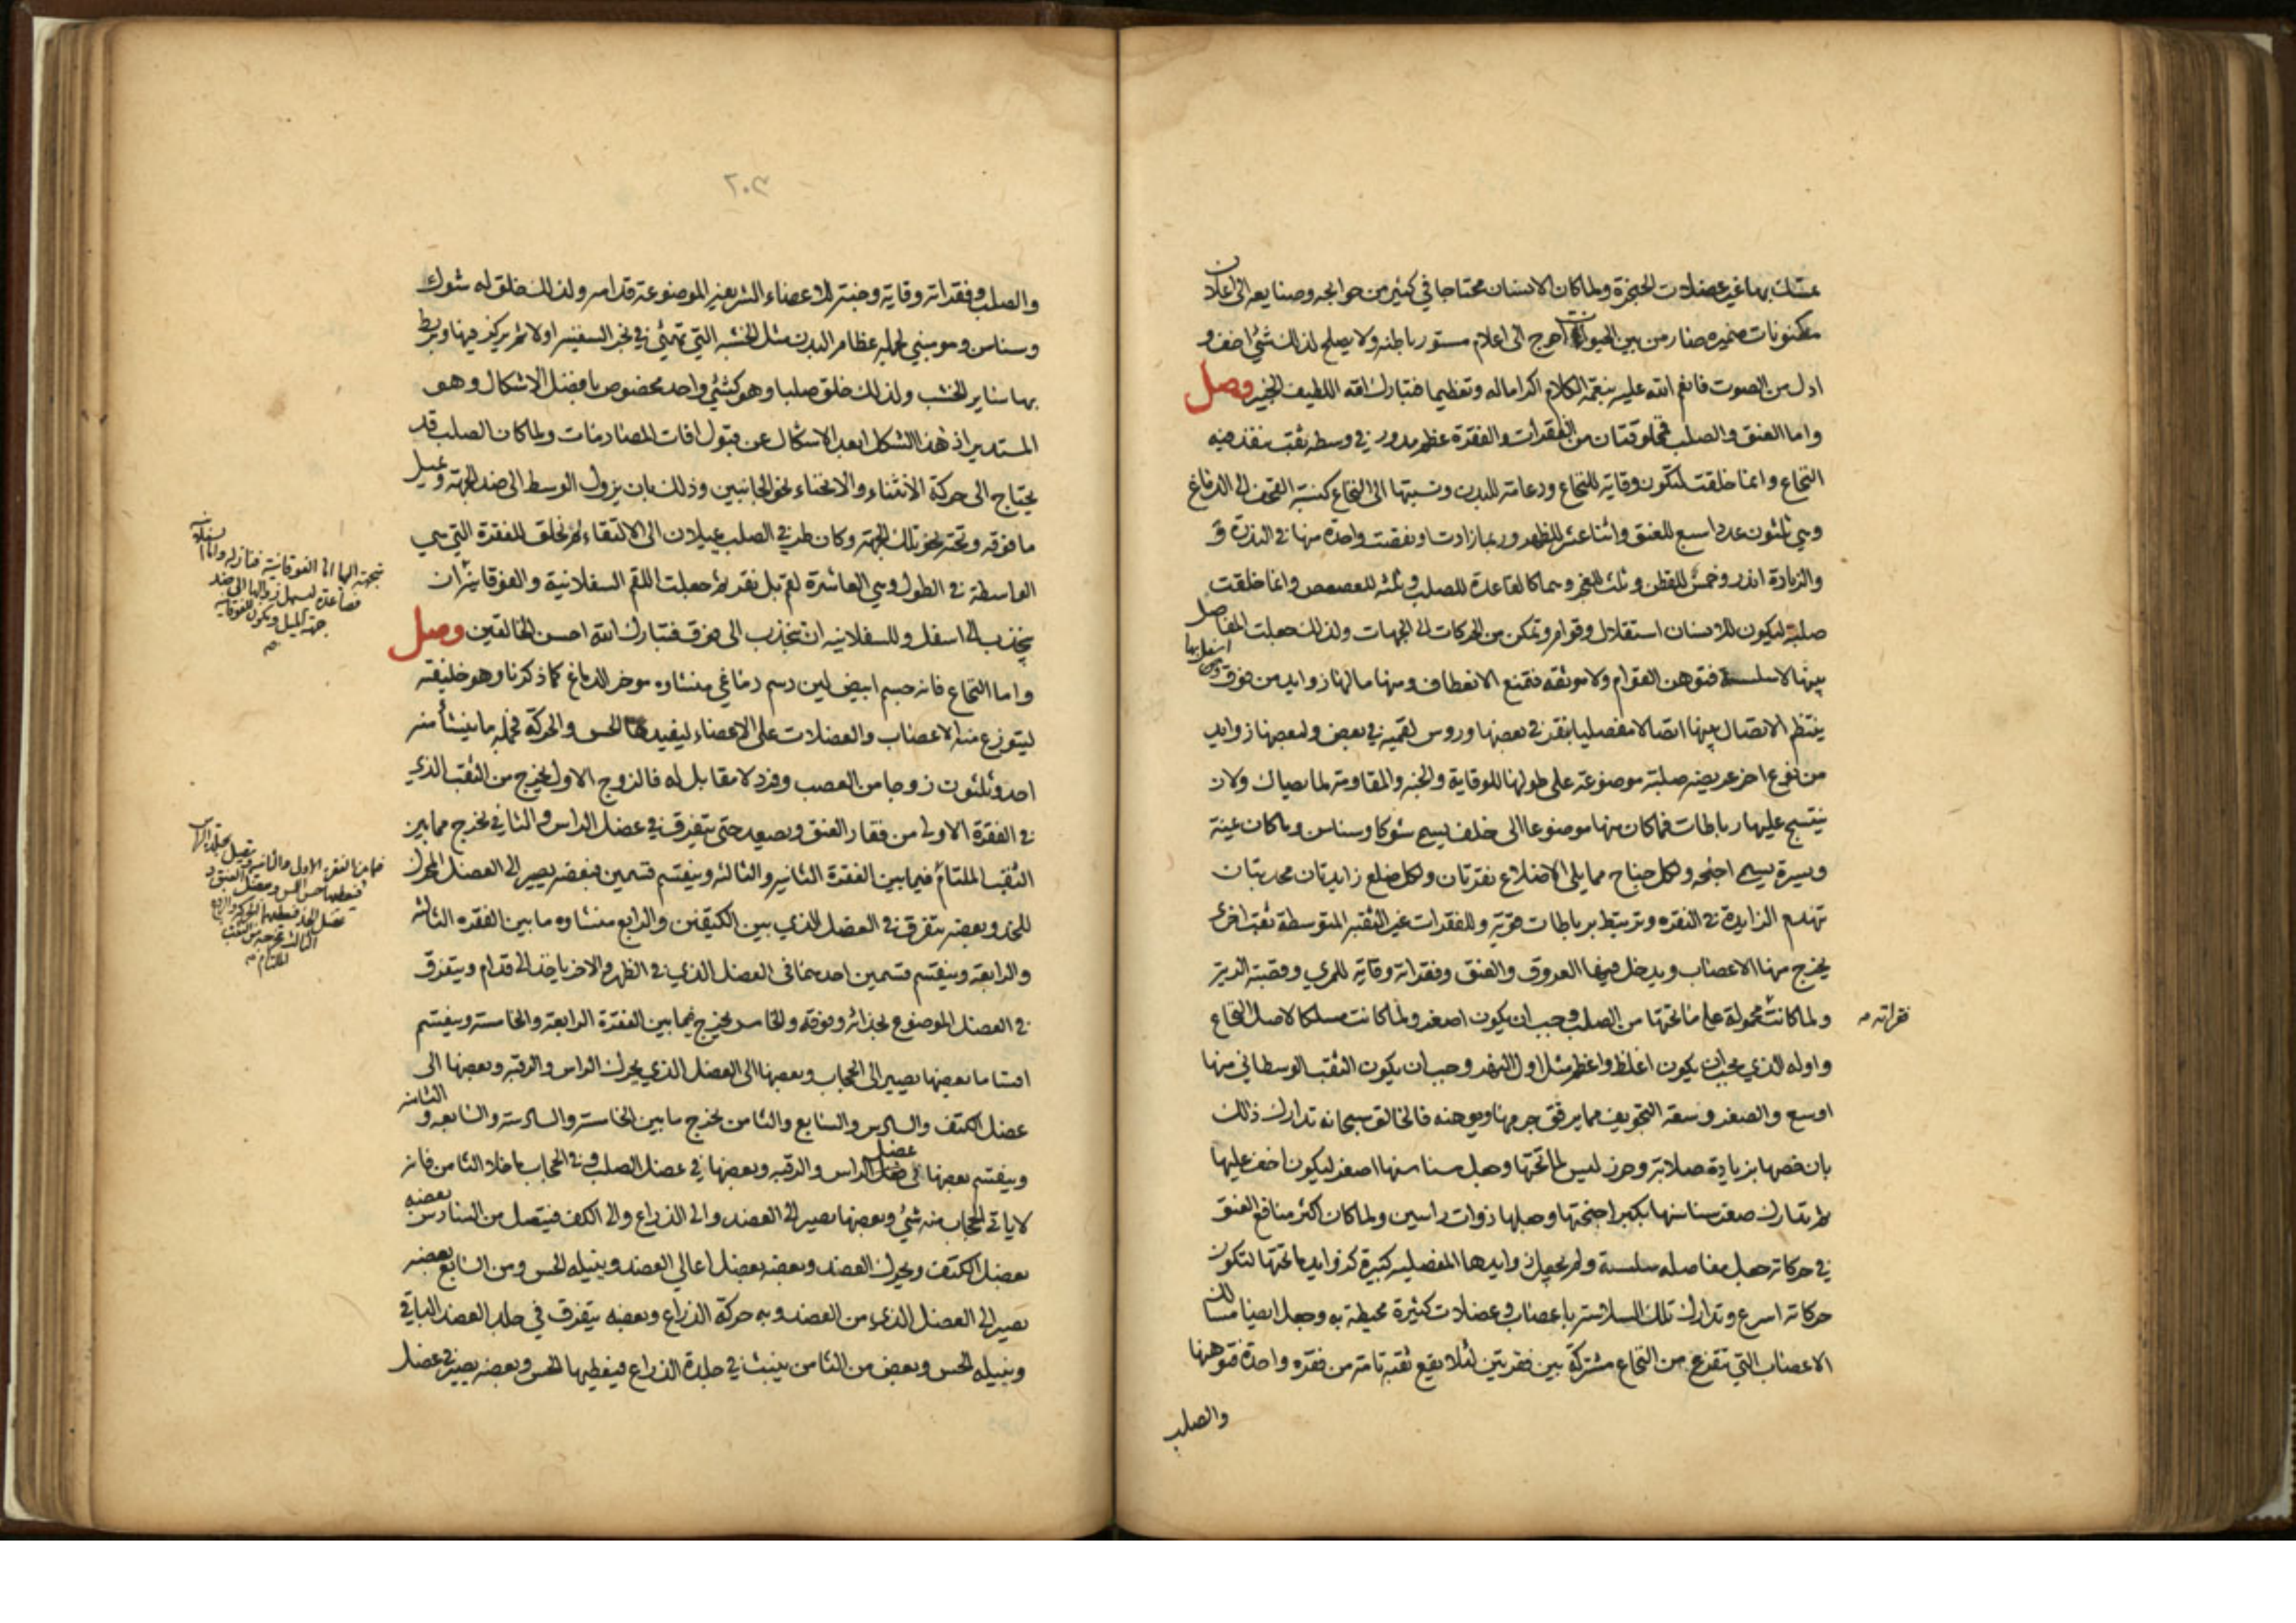 بها غير عضلات الحنجرة ولما كان الانسان محتاجا في كثير من حوائجه وصنايعه الى اعلان
مكنونات ضميره صار من بين الحيوانات احوج الى اعلام مستور باطنه ولا يصلح لذلك شئ اخف و
ادل من الصوت فانعم الله عليه بنعمة الكلام اكراما له وتعظيما فتبارك الله اللطيف الخبير وصل
واما العنق والصلب فمخلوقتان من الفقرات والفقرة عظم مدور في وسطه ثقب ينفذ فيه
النخاع وانما خلقت لتكون وقاية للنخاع ودعامة للبدن ونسبتها الى النخاع كنسبة القحف الى الدماغ
وهي ثلثون عددا سبع للعنق واثنا عشر للظهر وربما زادت او نقصت واحدة منها في الندرة و
والزيادة اندر وخمس للقطن وثلث للعجز وهما كالقاعدة للصلب وثلثه للعصعص وانما خلقت
صلبة ليكون للانسان استقلال وقوام وتمكن من الحركات الى الجهات ولذلك جعلت المفاصل
بينها لا سلسة فتوهن القوام ولا موثقه فتمنع الانعطاف ومنها ما لها زوايد من فوق
ومن اسفل بها
ينتظم الاتصال بينها اتصالا مفصليا بنقر في بعضها وروس لقمية في بعض ولبعضها زوايد
من نوع اخر عريضه صلبة موضوعة على طولها للوقاية والجنه والمقاومة لما يصاك ولان
ينتسج عليها رباطات فما كان منها موضوعا الى خلف يسمى شوكا وسناسن وما كان يمنة
ويسرة يسمى اجنحه ولكل جناح مما يلي الاضلاع نقرتان ولكل ضلع زايدتان محدبتان
تهندم الزايدة في النقره وترتبط برباطات قوية وللفقرات غير الثقبه المتوسطة ثقب اخرى
يخرج منها الاعصاب ويدخل فيها العروق والعنق وفقراته وقاية للمري وقصبة الرية
ولما كانت محمولة على ما تحتها من الصلب وجب ان يكون اصغر ولما كانت مسلكا لاصل النخاع
فقراته
واوله الذي يجب ان يكون اغلظ واعظم مثل اول النهر وجب ان يكون الثقب الوسطاني منها
اوسع والصغر وسعة التجويف مما يرقق جرمها ويوهنه فالخالق سبحانه تدارك ذلك
بان خصها بزيادة صلابة وحرز ليس لما تحتها وجعل سناسنها اصغر ليكون اخف عليها
ثم تدارك صغر سناسنها بكبر اجنحتها وجعلها ذوات راسين ولما كان اكثر منافع العنق
في حركاته جعل مفاصله سلسة ولم يجعل زوايدها المفصليه كبيرة كزوايد ما تحتها لتكون
حركاته اسرع وتدارك تلك السلاسة باعصاب وعضلات كثيرة محيطة به وجعل ايضا مسالك
الاعصاب التي تتفرع من النخاع مشتركة بين فقرتين لئلا يقع ثقبة تامة من فقره واحدة فتوهنها
والصلب
٢٠٣
والصلب وفقراته وقاية وجنة للاعضاء الشريفة الموضوعة قدامه ولذلك خلق له شوك
وسناسن وهو مبني لجملة عظام البدن مثل الخشبه التي تهيئ في نجر السفينة اولا ثم يركز فيها ويربط
بها ساير الخشب ولذلك خلق صلبا وهو كشئ واحد مخصوص بافضل الاشكال وهو
المستدير اذ هذا الشكل ابعد الاشكال عن قبول افات المصادمات ولما كان الصلب قد
يحتاج الى حركة الانثناء والانحناء نحو الجانبين وذلك بان يزول الوسط الى ضد الجهة ويميل
ما فوقه وتحته نحو تلك الجهة وكان طرفي الصلب يميلان الى الالتقاء لم يخلق للفقرة التي هي
الواسطة في الطول وهي العاشرة لقم بل نقر ثم جعلت اللقم السفلانية والفوقانية
متجهة اليها
يتجذب الى اسفل وللسفلانيه ان تنجذب الى فوق فتبارك الله احسن الخالقين وصل
واما النخاع فانه جسم ابيض لين دسم دماغي منشاوه موخر الدماغ كما ذكرنا وهو خليفته
ليتوزع منه الاعصاب والعضلات على الاعضاء ليفيدها الحس والحركة فجملة ما ينشأ منه
احد وثلثون زوجا من العصب وفرد لا مقابل له فالزوج الاول يخرج من الثقب الذي
في الفقرة الاولى من فقار العنق ويصعد حتى يتفرق في عضل الراس والثاني يخرج مما بين
الثقب الملتأم فيما بين الفقرة الثانيه والثالثه وينقسم قسمين فبعضه يصير الى العضل المحرك
للخد وبعضه يتفرق في العضل الذي بين الكتفين والرابع منشاوه ما بين الفقره الثالثه
والرابعة وينقسم قسمين احدهما في العضل الذي في الظهر والاخر ياخذ الى قدام ويتفرق
في العضل الموضوع بحذائه وفوقه والخامس يخرج فيما بين الفقرة الرابعة والخامسة وينقسم
اقساما بعضها يصير الى الحجاب وبعضها الى العضل الذي يحرك الراس والرقبة وبعضها الى
عضل الكتف والسادس والسابع والثامن يخرج ما بين الخامسة والسادسة والسابعه و الثامنه
وينقسم بعضها الى عضل الراس والرقبه وبعضها في عضل الصلب وفي الحجاب ما خلا الثامن فانه
لا ياتي الحجاب منه شئ وبعضها يصير الى العضد والى الذراع والى الكف فيتصل من السادس بعضه
بعضل الكتف ويحرك العضد وبعضه بعضل اعالي العضد وينيله الحس ومن السابع بعضه
يصير الى العضل الذي من العضد وبه حركة الذراع وبعضه يتفرق في جلد العضد الباقي
وينيله الحس وبعض من الثامن ينبث في جلدة الذراع فيعطيها الحس وبعضه يصير في عضل